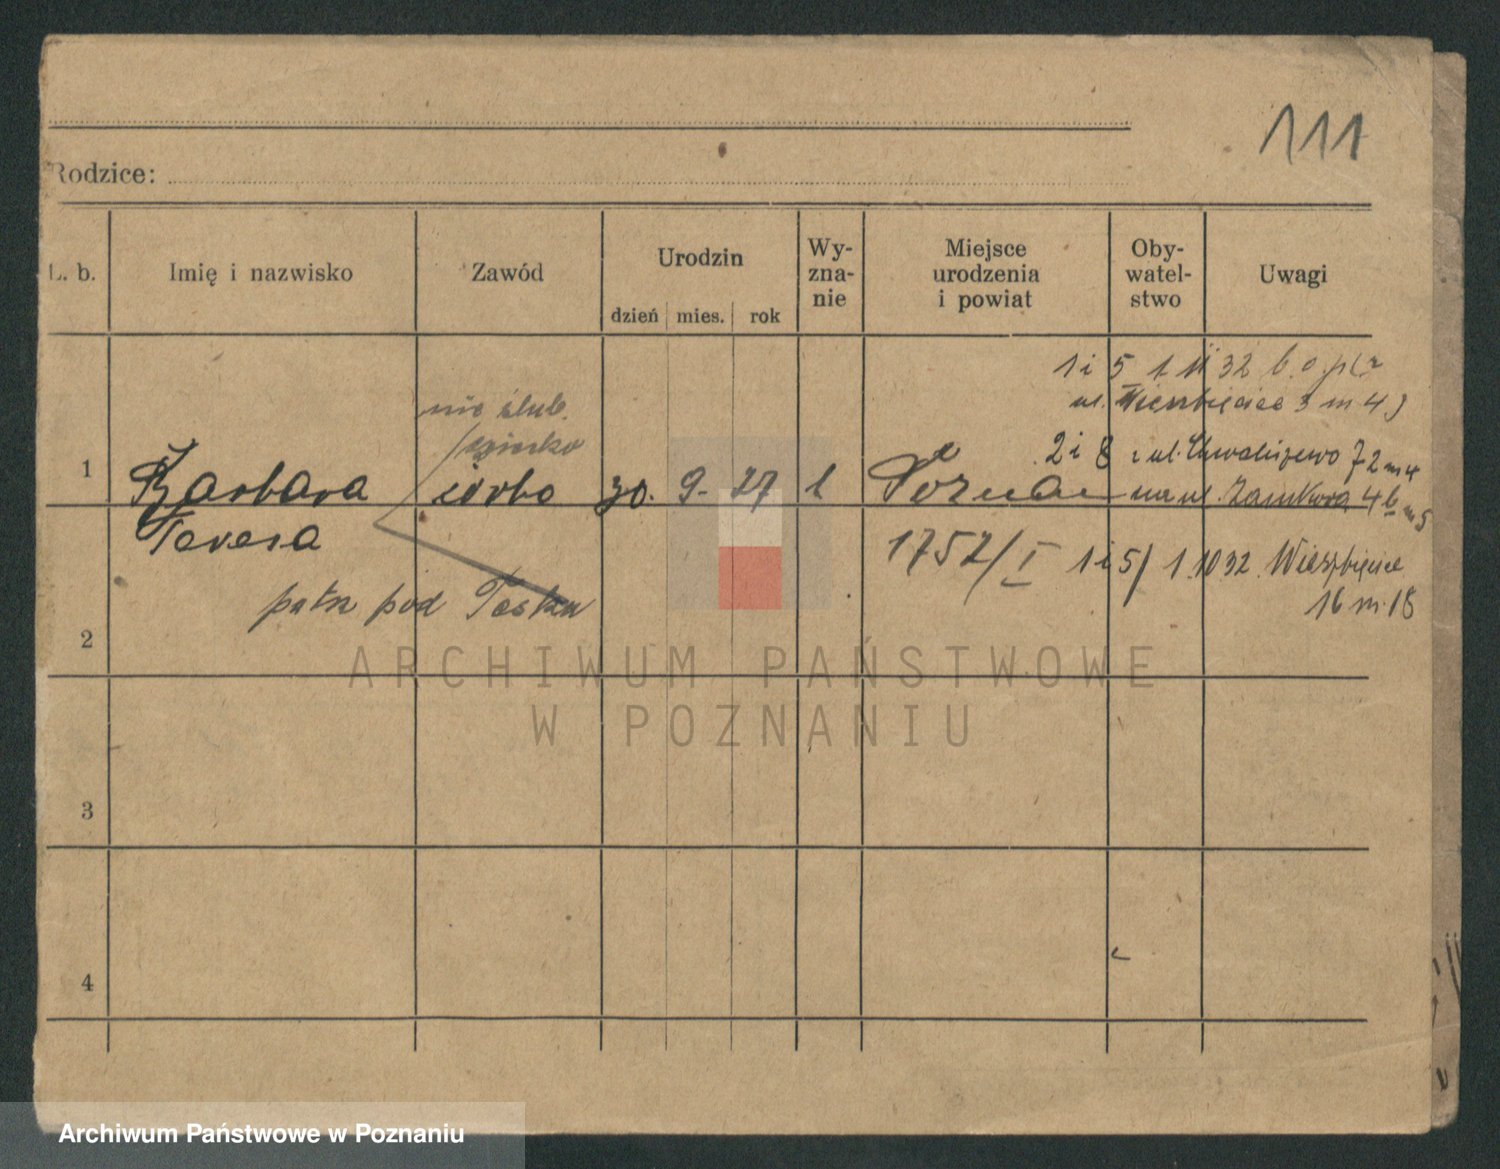 111
Rodzice:
L. b.
Imię i nazwisko
Zawód
Urodzin
dzień mies. rok
Wy-
zna-
nie
Miejsce
urodzenia
i powiat
Oby-
watel-
stwo
Uwagi
1 i 5 1 11 32
ul. 3 m 4
nie ślub.
2 i 8 z ul. Chwaliszewo 72 m 4
1
Barbara córka 30. 9. 27 Poznań na ul. Zamkowa 4b m 5
Teresa
1757/I 1 i 5/ 1.10 32. Wierzbięcice
16 m. 18
patrz pod Teska
2
3
4
ARCHIWUM PAŃSTWOWE
W POZNANIU
Archiwum Państwowe w Poznaniu